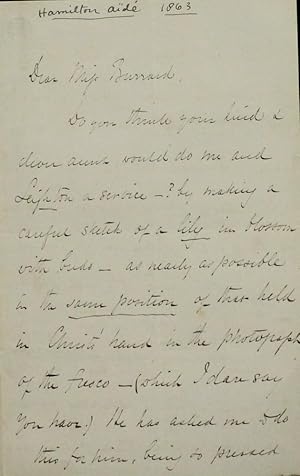 Hamilton Aïdé 1863
Dear Miss Burrard,
Do you think your kind &
dear aunt would do me and
Leighton a service —? by making a
careful sketch of a lily in blossom
with buds — as nearly as possible
in the same position of that held
in Christ's hand in the photograph
of the fresco — (which I dare say
you have.) He has asked me to do
this for him, being so pressed